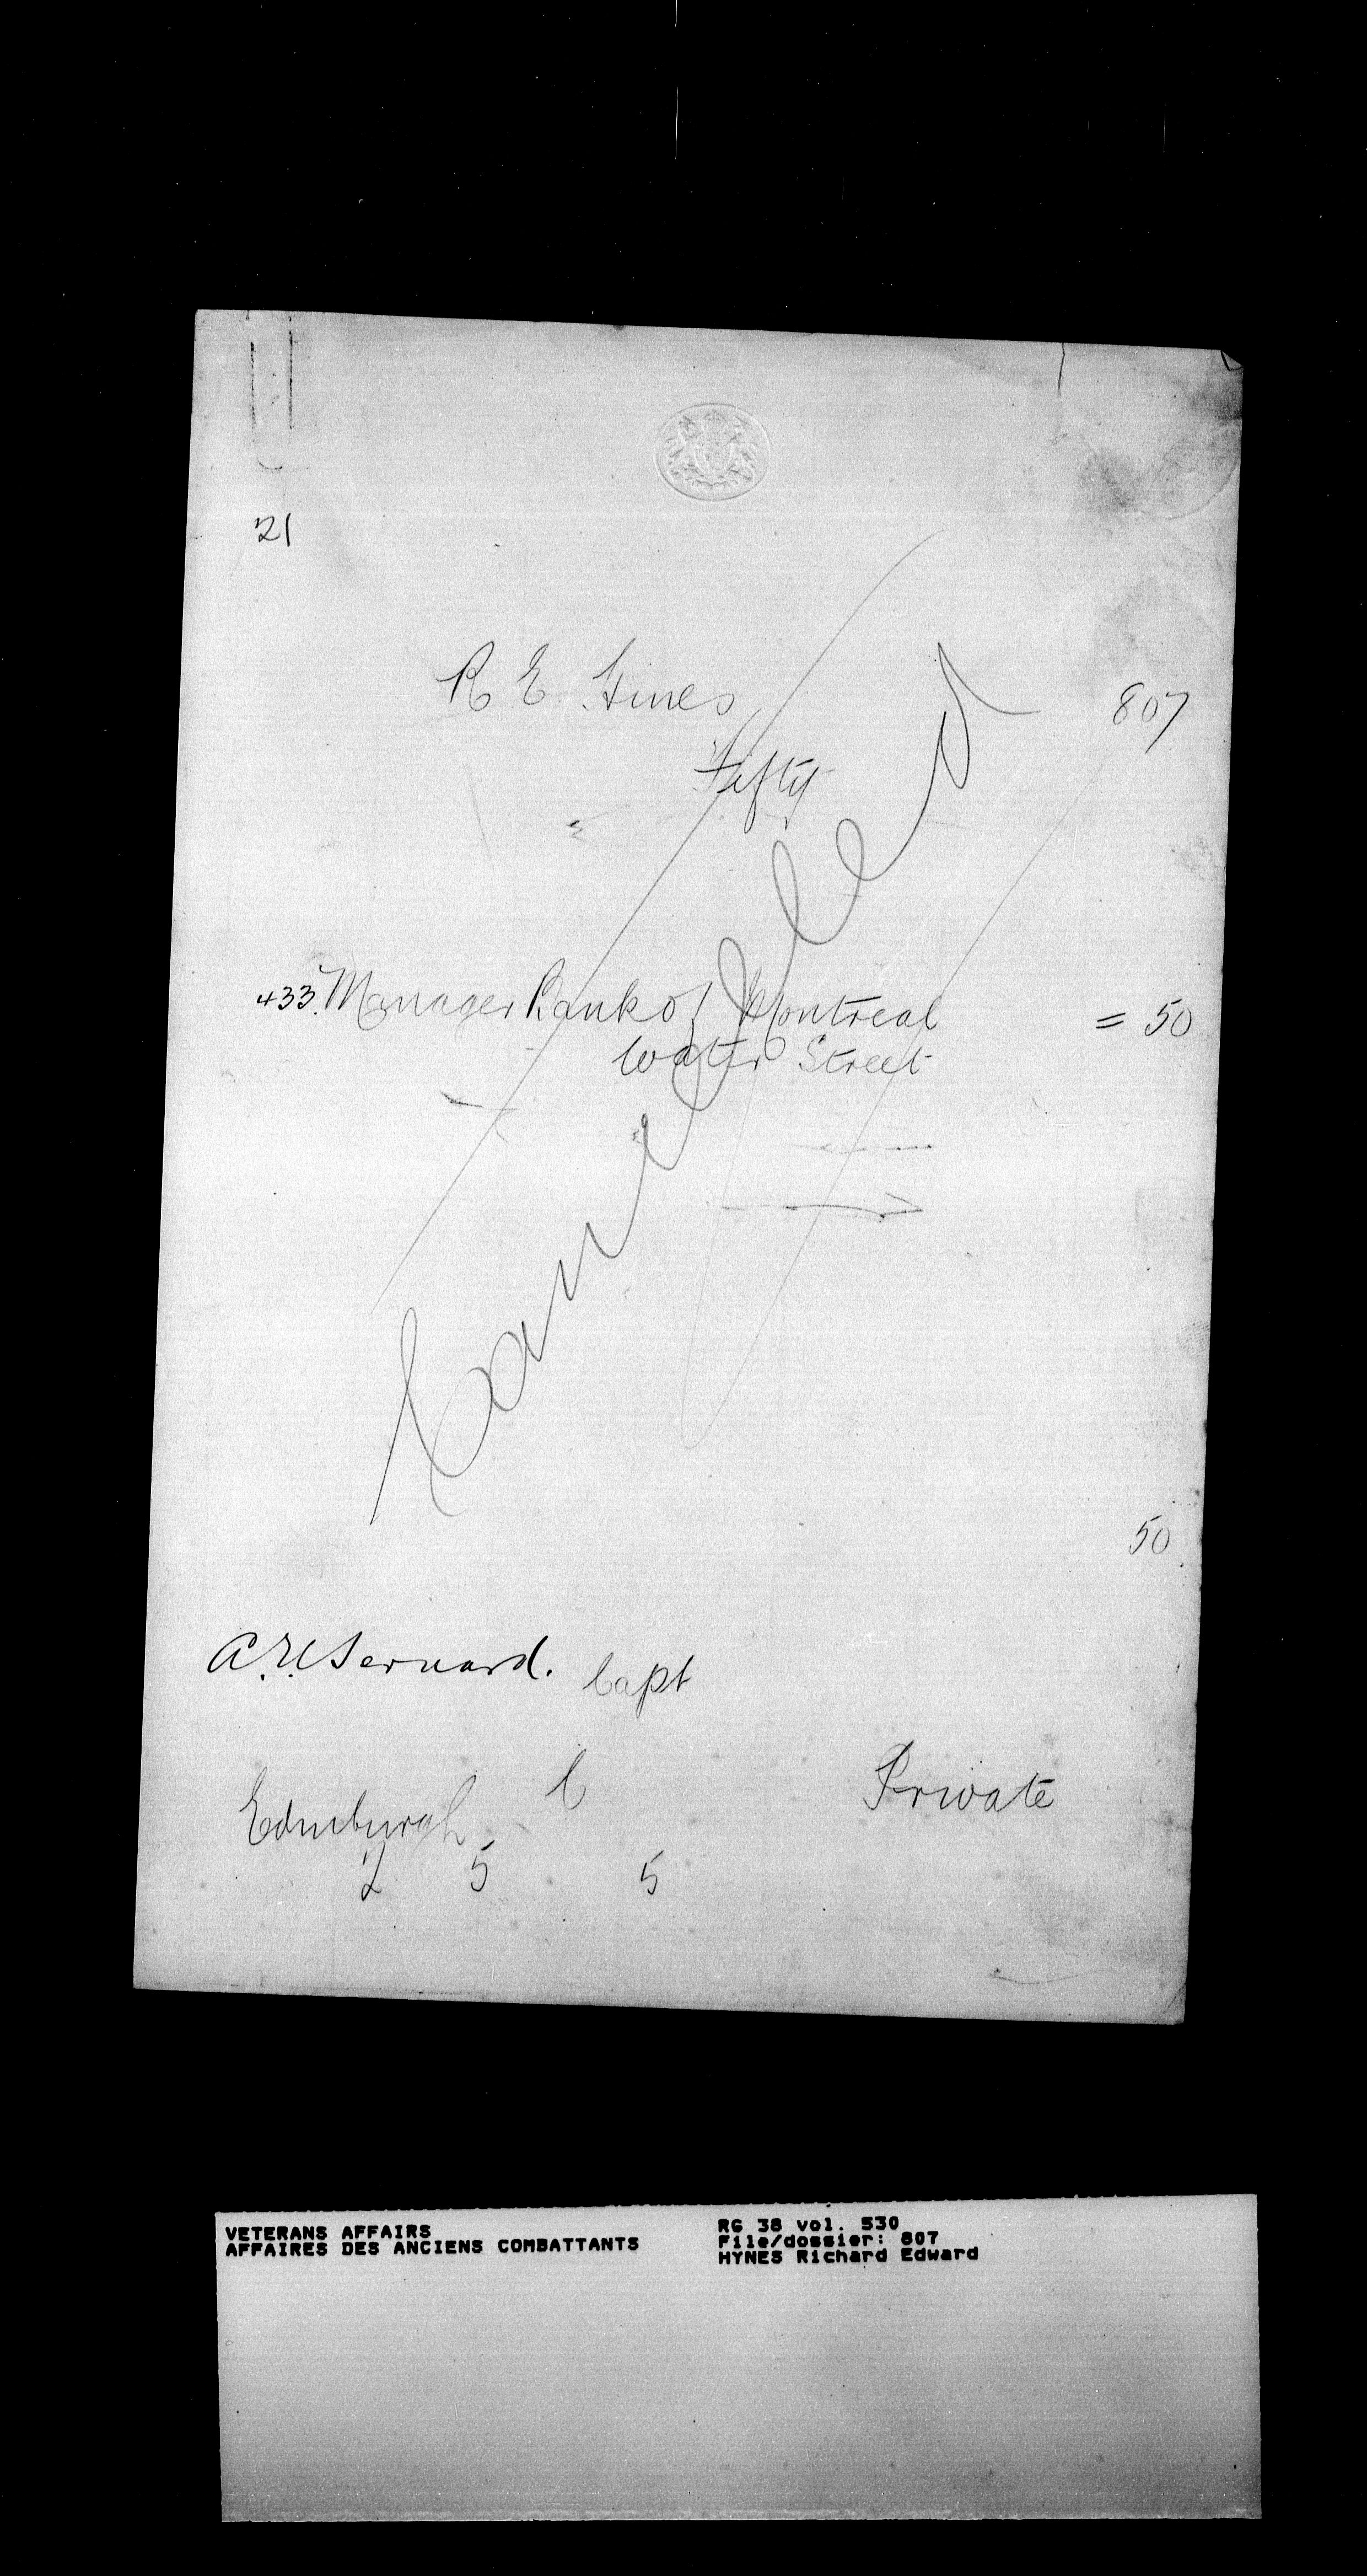 21
R E Hines 807
Fifty
433. Manager Bank of Montreal = 50
Water Street
Cancelled
50
Capt
Edinburgh C Private
2 5 5
VETERANS AFFAIRS
AFFAIRES DES ANCIENS COMBATTANTS
RG 38 vol. 530
File/dossier: 807
HYNES Richard Edward